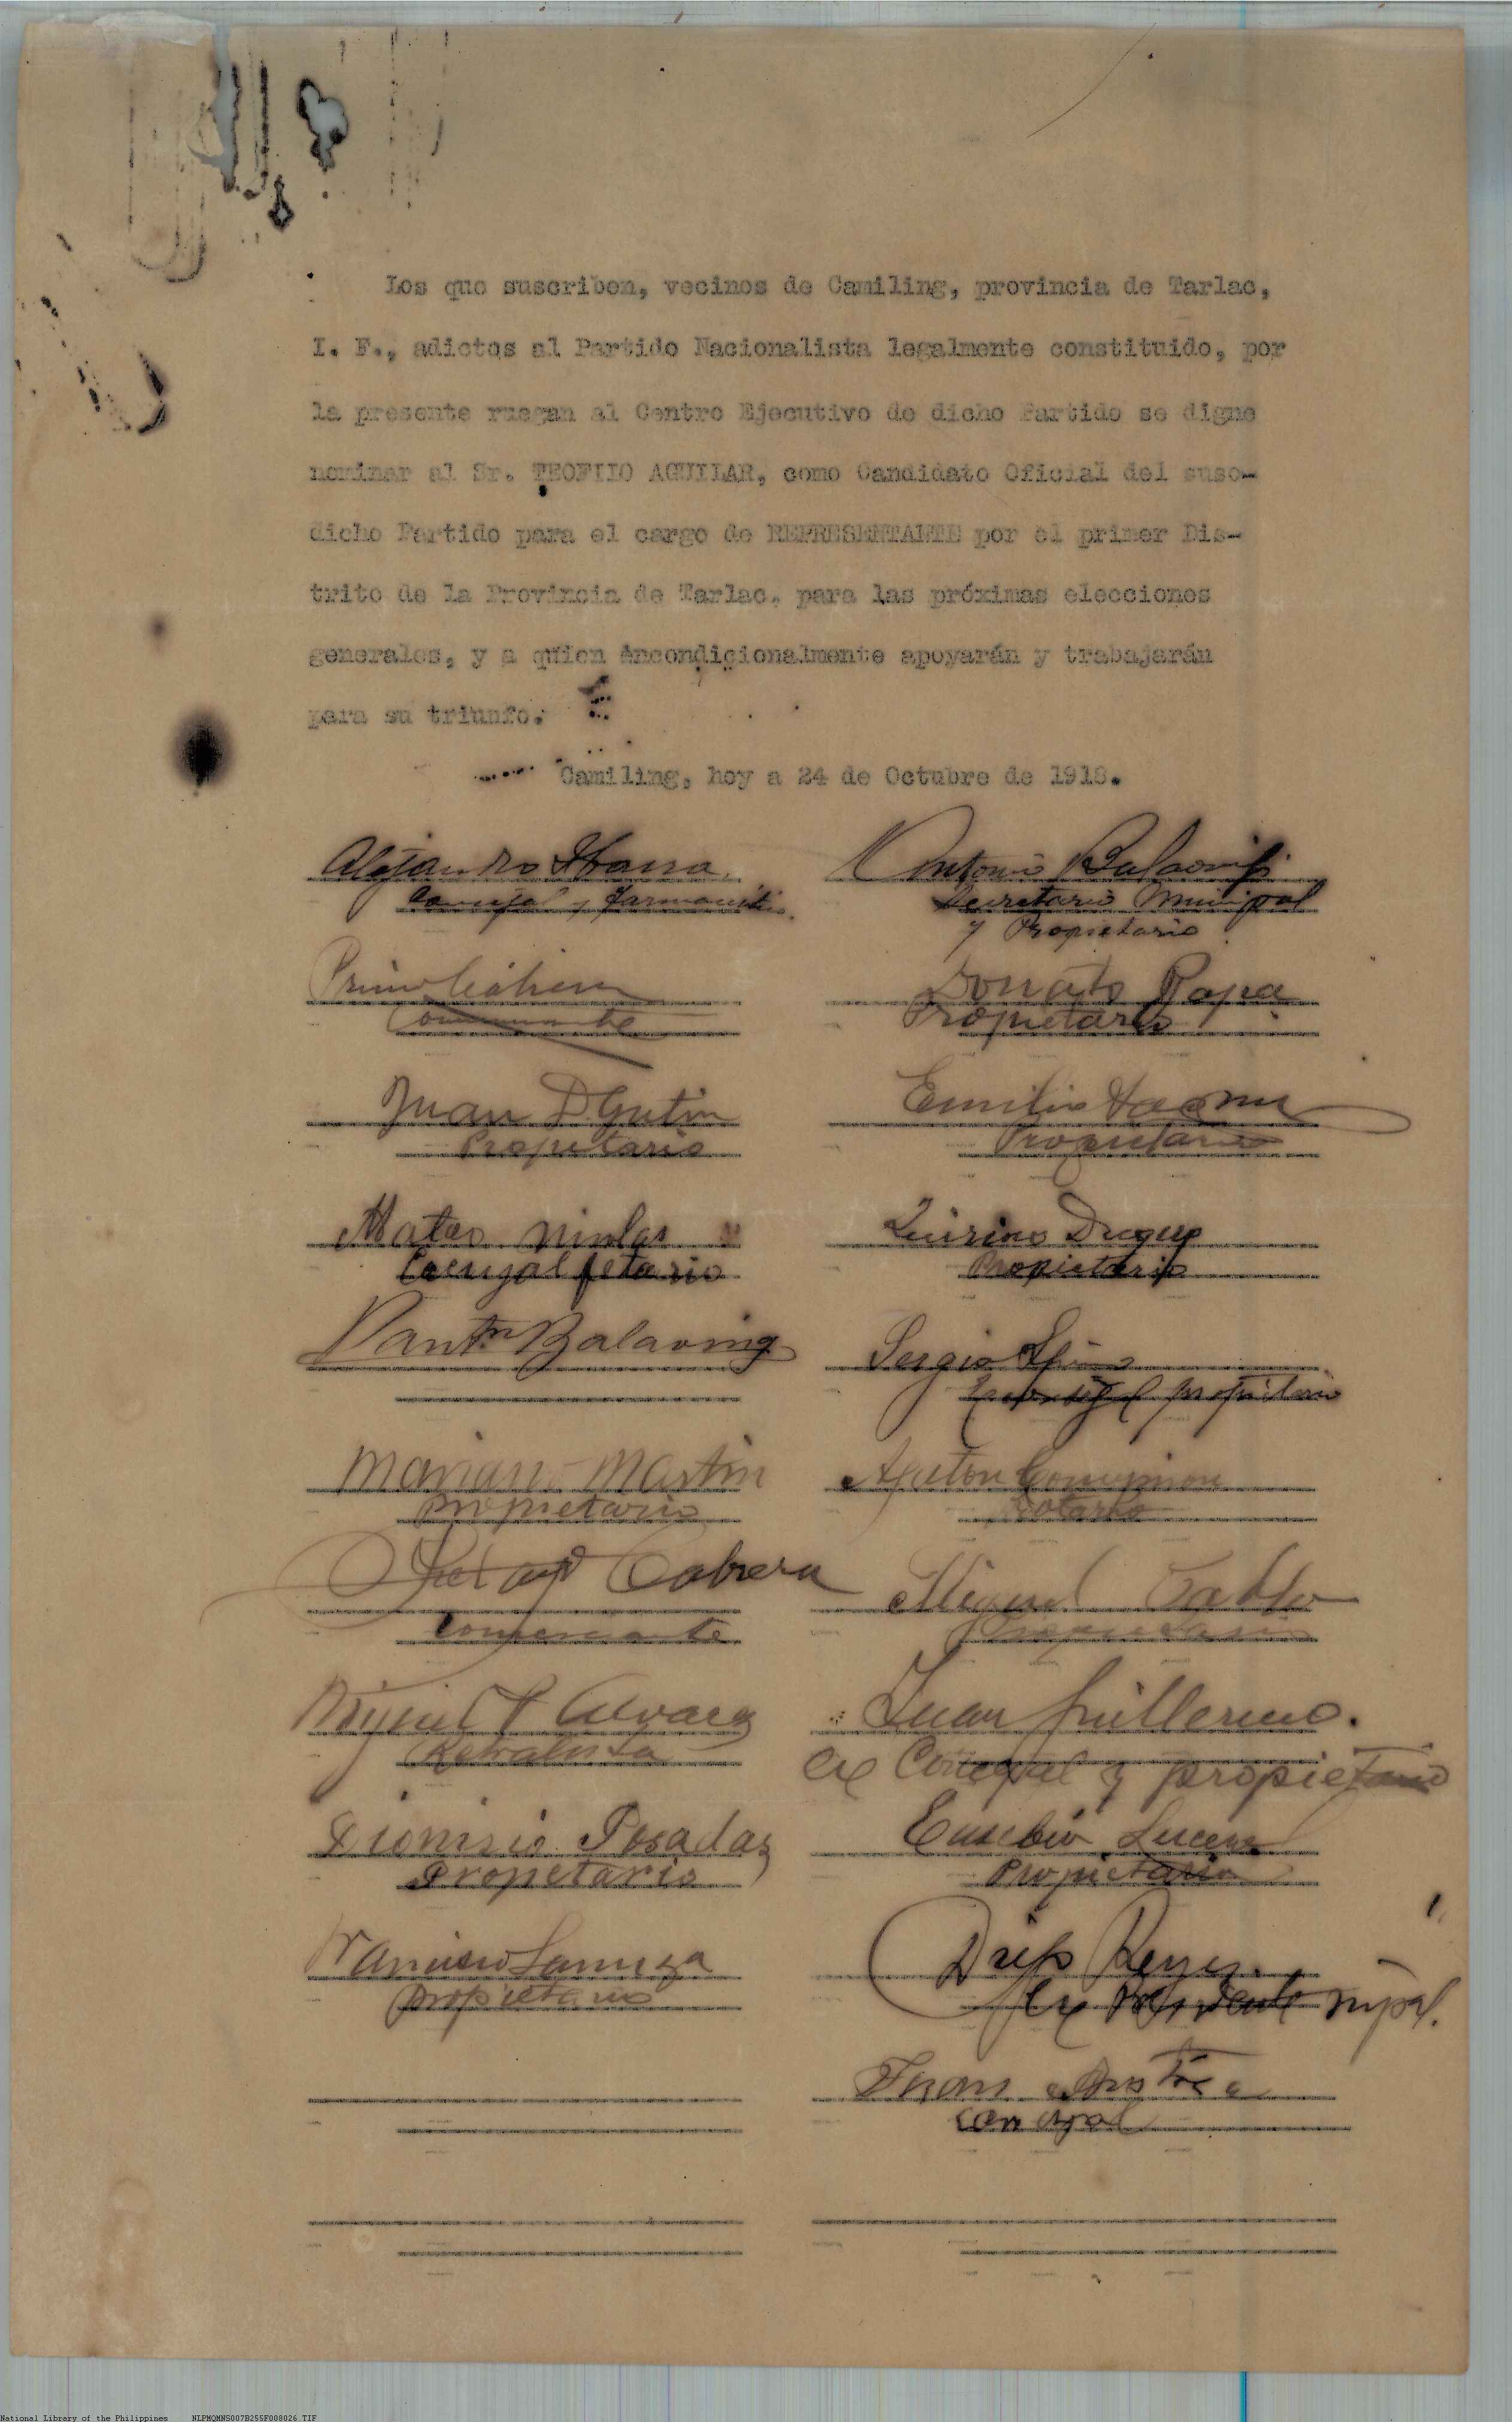 Los que suscriben, vecinos de Camiling, provincia de Tarlac,
I. F., adictos al Partido Nacionalista legalmente constituido, por
la presente ruegan al Centro Ejecutivo de dicho Partido se digne
nominar al Sr. TEOFILO AGUILAR, como Candidato Oficial del suso-
dicho Partido para el cargo de REPRESENTANTE por el primer Dis-
trito de la Provincia de Tarlac, para las próximas elecciones
generales, y a quien incondicionalmente apoyarán y trabajarán
para su triunfo.
Camiling, hoy a 24 de Octubre de 1918.
Alejandro Ibarra
Concejal y Farmacéutico.
Antonio
Secretario Municipal
y Propietario
Primo
Comerciante
Donato Papa
Propietario
Juan D. Gutin
Propietario
Emilio
Propietario
Mateo Nicolas
Quirino Duque
Propietario
Balaoing
Sergio
Concejal propietario
Mariano Martin
Propietario
Agaton
Notario
Cabrera
Comerciante
Miguel Pablo
Propietario
Miguel Alvarez
Retratista
Juan Guillermo.
Ex Concejal y propietario
Dionisio Posadas
Propietario
Eusebio Lucena
Propietario
Francisco
propietario
Reyes
Ex Presidente mpal.
Juan
Concejal
National Library of the Philippines NLPMQMNS007B255F008026.TIF